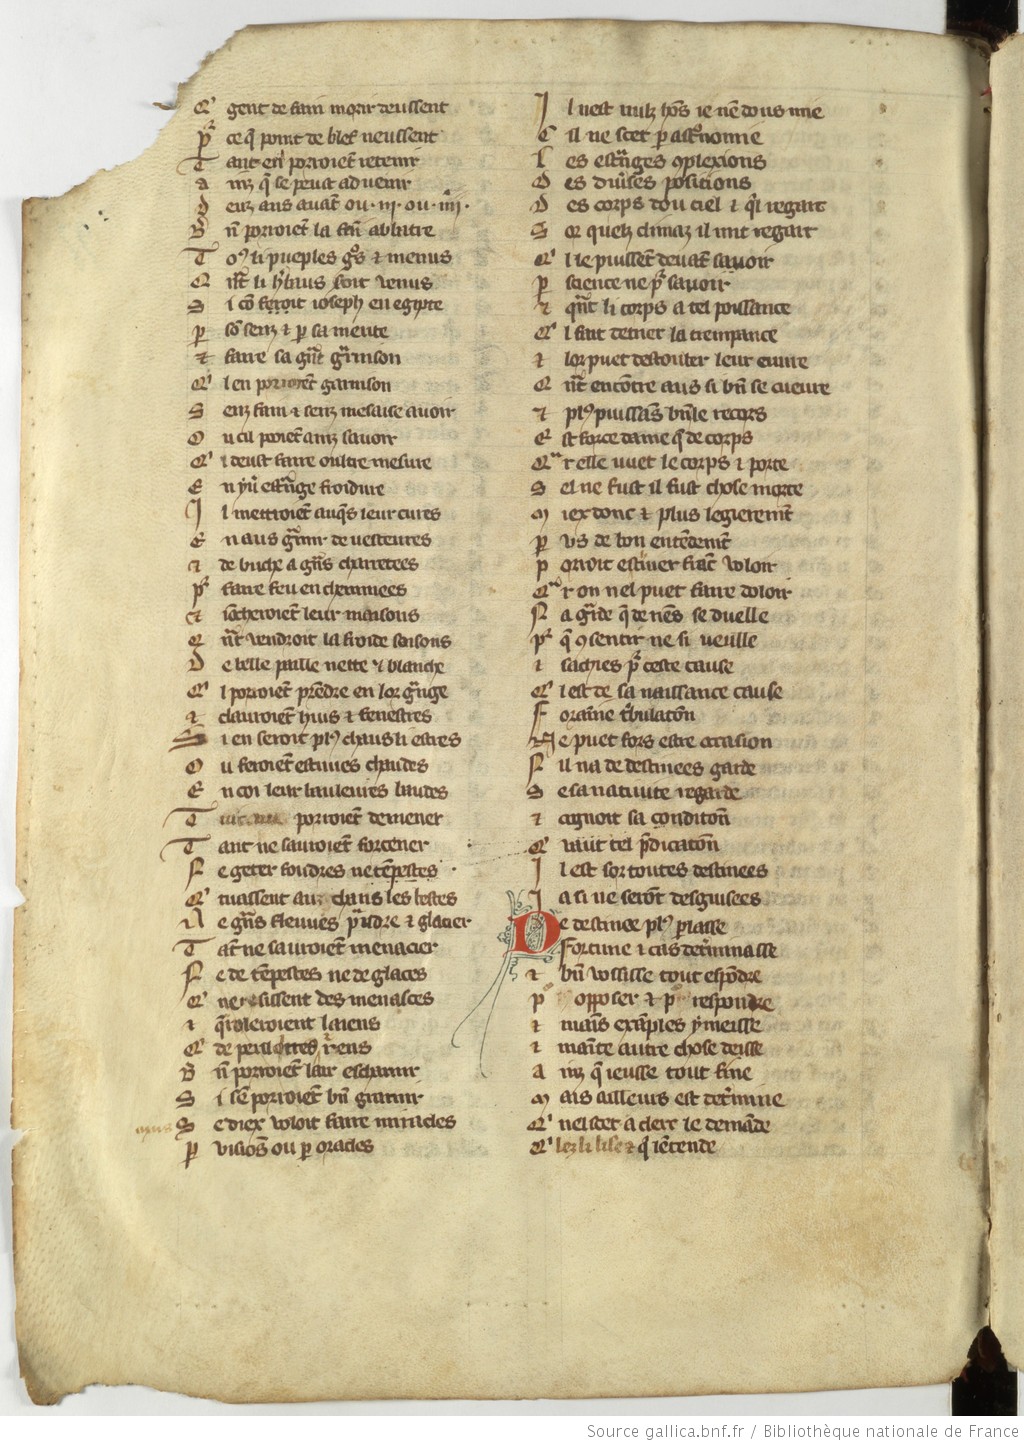 Q' gent de fain morir deussent
Pr ce q̄ point de blef neussent
Tant en porroiēt retenir
Ainz q̄ se peust advenir
Deuz ans avāt ou .iij. ou .iiij.
Bn̄ porroiēt la fain abbatre
Tous li pueples gros & menus
Qn̄t li yvers soit venus
Si cō feroit ioseph en egypte
P sō senz & p sa merite
Et faire sa gn̄t garnison
Q' len porroiēt garnison
Senz fain & senz mesaise avoir
Ou cil poiēt ainz savoir
Q' i deust faire oultre mesure
En yver estrange froidure
Il mettroiēt ancois leur cures
En aus garnir de vesteures
Et de buche a grās charretees
Pr faire feu en cheminees
Et ioncheroiēt leur maisons
Qn̄t vendroit la froide saisons
De belle paille nette & blanche
Q' l porroiēt prēdre en lor grange
Et clauroiēt huis & fenestres
Si en seroit plus chaus li estres
Ou feroiēt estuves chaudes
En coi leur baulevres baudes
Tuit porroiēt demener
Tant ne sauroiēt forcener
Ne geter foudres ne tēpestes
Q' tuassent aus chans les bestes
Ne grās fleuves prendre & glacier
Tāt ne sauroiēt menacier
Ne de tēpestes ne de glaces
Q' ne resissent des menasces
Et q̄roleroient laiens
Q' de perilz rens
Bn̄ porroiēt lair escharnir
Si sē porroiēt bn̄ garnir
Se diex voloit faire miracles
P visiōs ou p oracles
Il nest nulz hōs ie nē dous mie
Cil ne scet p astronomie
Les estranges oplexions
Des diverses positions
Des corps dou ciel & q'l regart
Sor quelz climaz il unt regart
Q' l le puissēt devāt savoir
P science ne pr avoir
Et qn̄t li corps a tel poissance
Q' l fait detriēt la trempance
Et lor puet destourber leur euvre
Qn̄t encōtre aus si bn̄ se cuevre
Et plus puissās bn̄ le recors
Est force dame q̄ de corps
Qar elle muet le corps & porte
Sel ne fust il fust chose morte
Miex donc & plus legieremt̄
Pus de bon entēdemt̄
Porroit eschiver frāc voloir
Qar on nel puet faire doloir
Na garde q̄ de riēs se duelle
Pr q̄ 9sentir ne si veuille
Et sachies pr ceste cause
Q' l est de sa naissance cause
Foraine tbulatōn
Ne puet fors estre occasion
Nil na de destinees garde
Se sa nativite regarde
Et cognoit sa conditōn
Q' vaut tel prdicatōn
Il est sor toutes destinees
Ia si ne serōt desguisees
De destinee plus plasse
Fortune & cas determinasse
Et bn̄ vossisse tout espōdre
P opposer & p respondre
Et mains exāples y meisse
Et mainte autre chose deisse
Ainz q̄ ieusse tout fine
Mais ailleurs est determine
Q' nel scet a clerc le demāde
Q' lez li lise & q' lētende